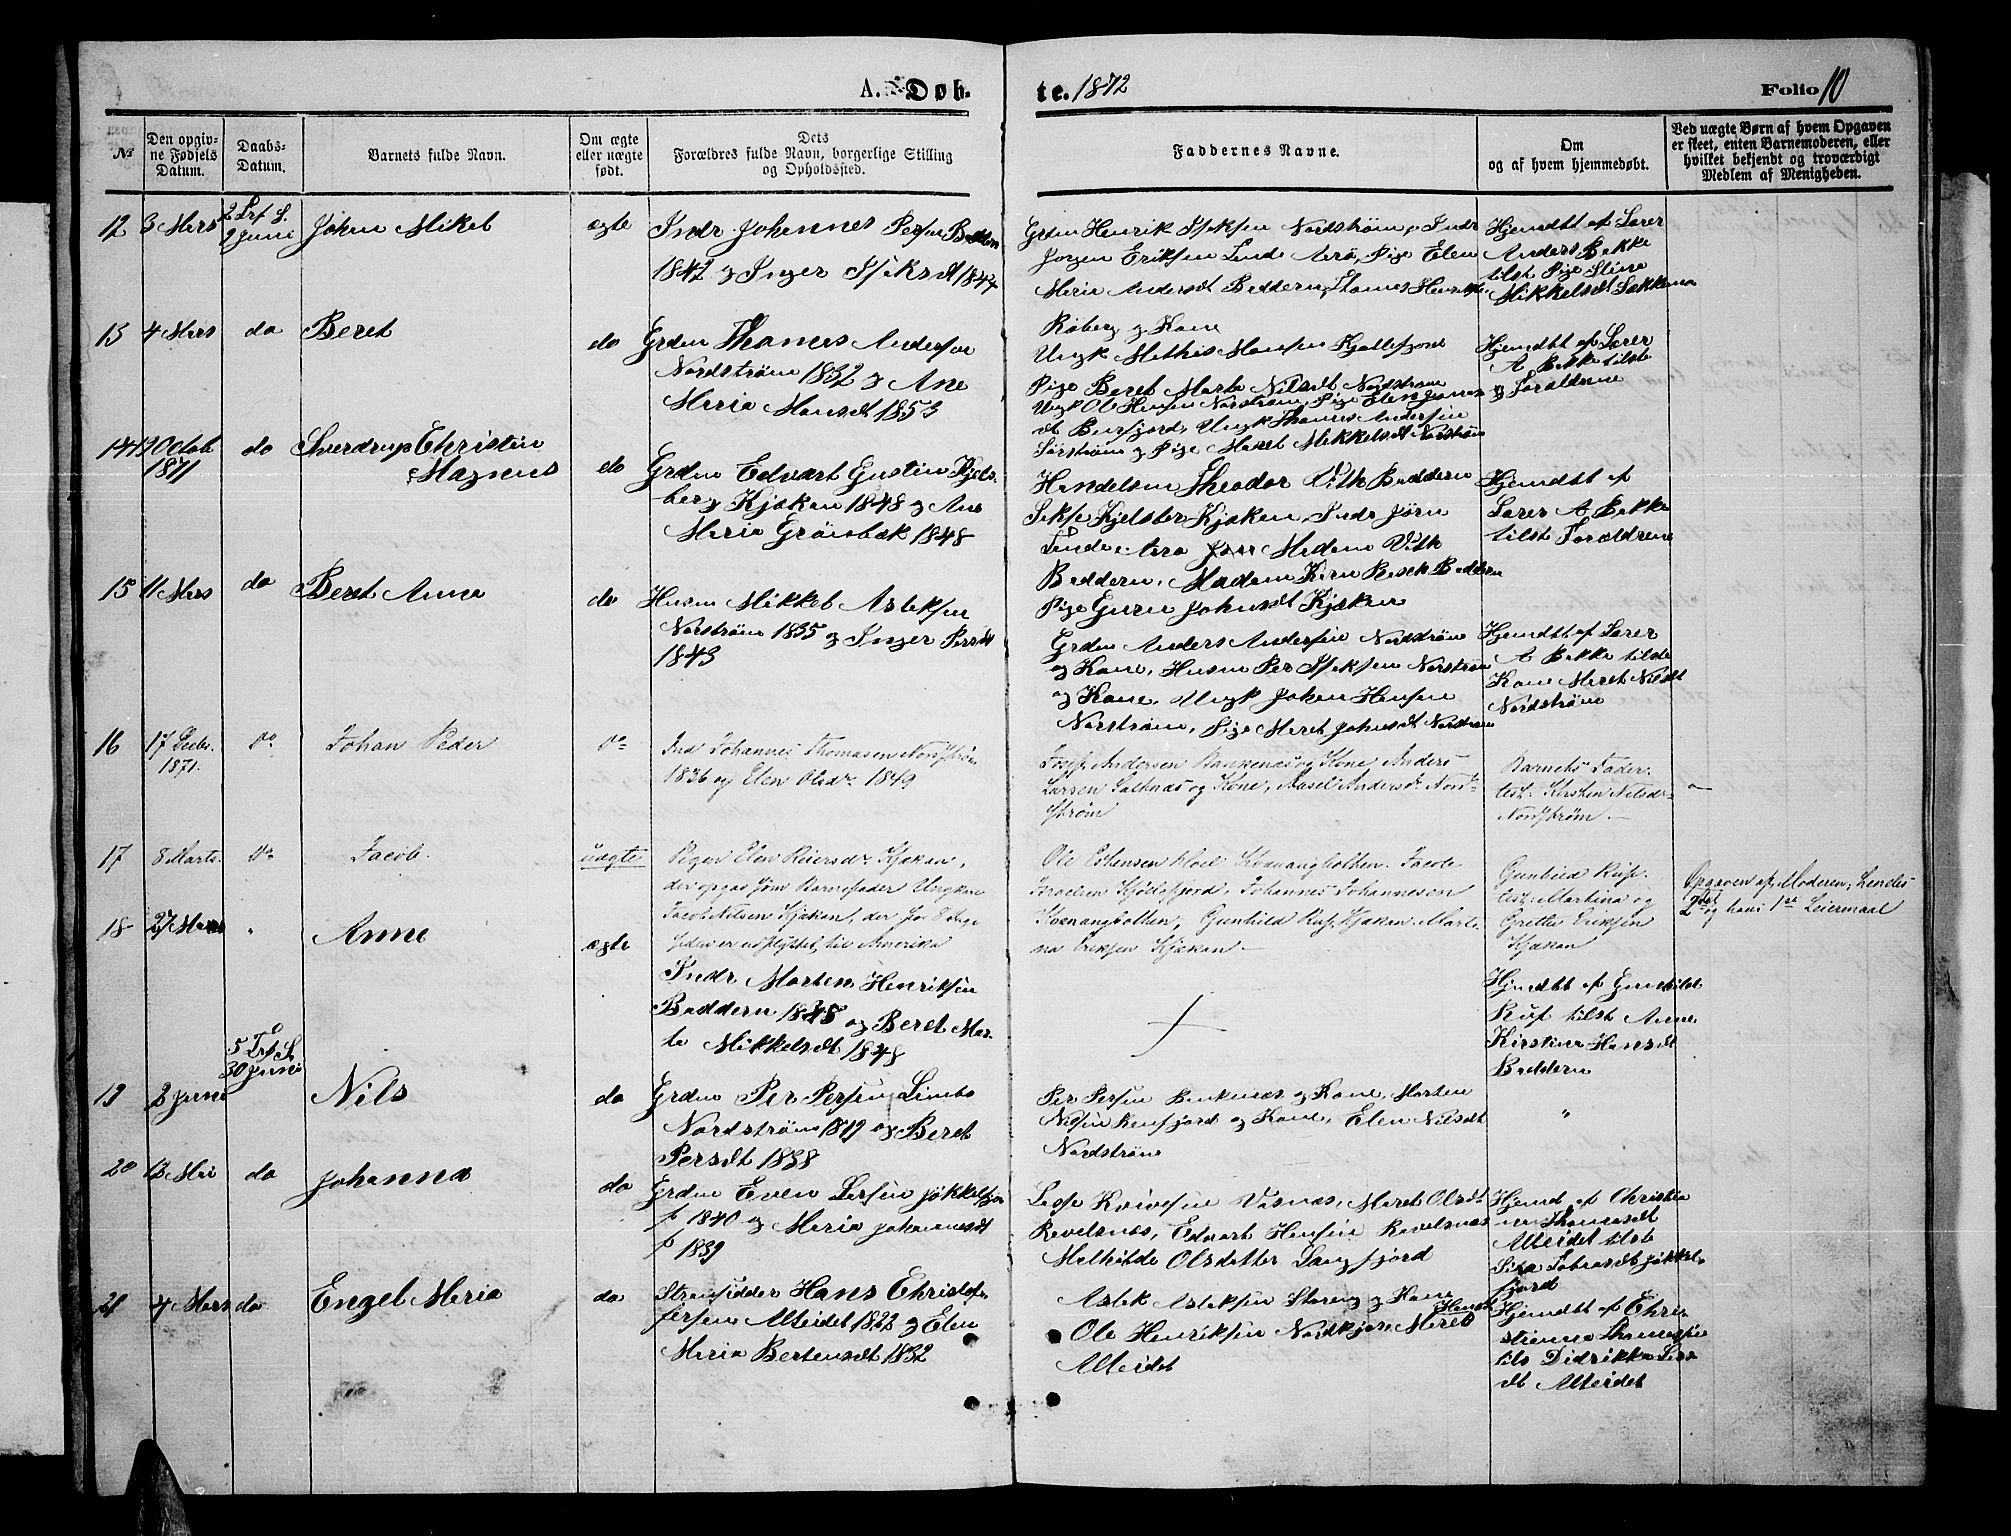 A. Døb-
te. 1872
Folio 10
No
Den opgiv-
ne Fødsels
Datum.
Daabs-
Datum.
Barnets fulde Navn.
Om ægte
eller uægte
født.
Dets
Forældres fulde Navn, borgerlige Stilling
og Opholdssted.
Faddernes Navne.
Om
og af hvem hjemmedøbt.
Ved uægte Børn af hvem Opgaven
er skeet, enten Barnemoderen, eller
hvilket bekjendt og troværdigt
Medlem af Menigheden.
12
3 Mars
2 Trf S.
9 Juni
Johan Mikel
ægte
Indr Johannes Persen Baddern
1842 og Inger Isaksdt 1844
Grdm Henrik Isaksen Nordstrøm, Indr
Jørgen Eriksen Lunde Aarø, Pige Elen
Maria Andersdt Baddern, Thomas Henriks
Raberg og Kone
Hjemdtt af Lærer
Anders Bekke
tilst. Pige Stine
Mikkelsdt Sakkemo
13
4 Mars
do
Beret
do
Grdm Thomas Andersen
Nordstrøm 1832 og Ane
Maria Monsdt 1853
Ungk Mathis Monsen Kjøllefjord
Pige Beret Marta Nilsdt Nordstrøm
Ungk Ole Hansen Norstrøm, Pige Elen Jonas
dt Burfjord, Ungk Thomas Andersen
Sørstrøm og Pige Maret Mikkelsdt Norstrøm
Hjemdtt af Lærer
A Bekke tilst
og Forældrene
14
19 Octob
1871
do
Sverdrup Christin
Magnus
do
Grdm Edvart Gustin Kjels-
berg Kjækan 1848 og Ane
Maria Grönbæk 1848
Handelsm Theodor Vitk Baddern
Kjelsber Kjækan, Indr Jørn
Lunde Aarø Madam Vitk
Baddern, Madam Karn Besek Baddern
Pige Guru Johnsdt Kjækan
Hjemdtt af
Lærer A Bekke
tilst Forældrene
15
11 Mars
do
Beret Anna
do
Husm Mikkel Aslaksen
Norstrøm 1835 og Inger Persdt
1843
Grdm Anders Andersen Nordstrøm
og Kone, Husm Per Isaksen Norstrøm
og Kone, Ungk Johan Hansen
Norstrøm, Pige Maret Johnsdt Norstrøm
Hjemdtt af Lærer
A Bekke tilst
Kone Maret Nilsdt
Nordstrøm
16
17 Decbr.
1871.
do
Johan Peder
do
Ind Johannes Thomasen Nordstrøm
1836 og Elen Olsdr 1849
Josef Andersen Bankenæs og Kone, Anders
Larsen Saltnæs og Kone, Marel Anders dt Nord-
strøm
Barnets Fader.
test. Kirsten Nilsdr
Nordstrøm.
17
8 Marts.
do
Jacob.
uægte
Pigen Elen Reiersdr Kjækan,
der opgav som Barnefader Ungkarl
Jacob Nilsen Kjækan, der for 8 Dage
siden er udflyttet til Amerika
Ole Esthensen Kloel Kvænangbotten. Jacob
Israelsen Kjödesfjord, Johannes Johannesen
Kvænangbotten, Gunhild Rusp. Kjækan, Marti-
na Eriksen Kjækan.
Gunhild Rusp.
test. Martina og
Gretha Eriksen
Kjækan
Opgaven af Moderen; hendes
2det og hans 1ste Leiermaal
18
27 Mars
"
Anne
ægte
Indr Morten Henriksen
Baddern 1848 og Beret Mar-
ta Mikkelsdt 1848
Hjemdtt af Gunhild
Rusp tilst Anne
Kirstine Hansdt
Baddern
19
2 Juni
5 Trf S.
30 Juni
Nils
do
Grdm Per Persen Limbo
Nordstrøm 1842 og Beret
Persdt 1838
Per Persen Bankenæs og Kone, Morten
Nilsen Renfjord og Kone, Elen Nilsdt
Nordstrøm
"
20
13 Mai
do
Johanna
do
Grdm Even Larsen Jøkkelfjor
f 1840 og Maria Johannesdt
f 1839
Lasse Kvivesen Vasnæs, Maret Olsdt
Ravelsnæs, Edvart Hansen Ravelsnæs
Mathilde Olsdatter Langfjord
Hjemd af Christia
na Thomasdt
Alteidet tilst
Siza Tobiasdt Jøkkel-
fjord
21
4 Mars
do
Engel Maria
do
Strandsidder Hans Christof-
fersen Alteidet 1822 og Elen
Maria Bertensdt 1832
Aslak Aslaksen Storeng og Kone
Ole Henriksen Nordkjøs, Maret Hansdt
Alteidet
Hjemdtt af Chri
stianna Thomasdt
tils Didrikka Lars
dt Alteidet